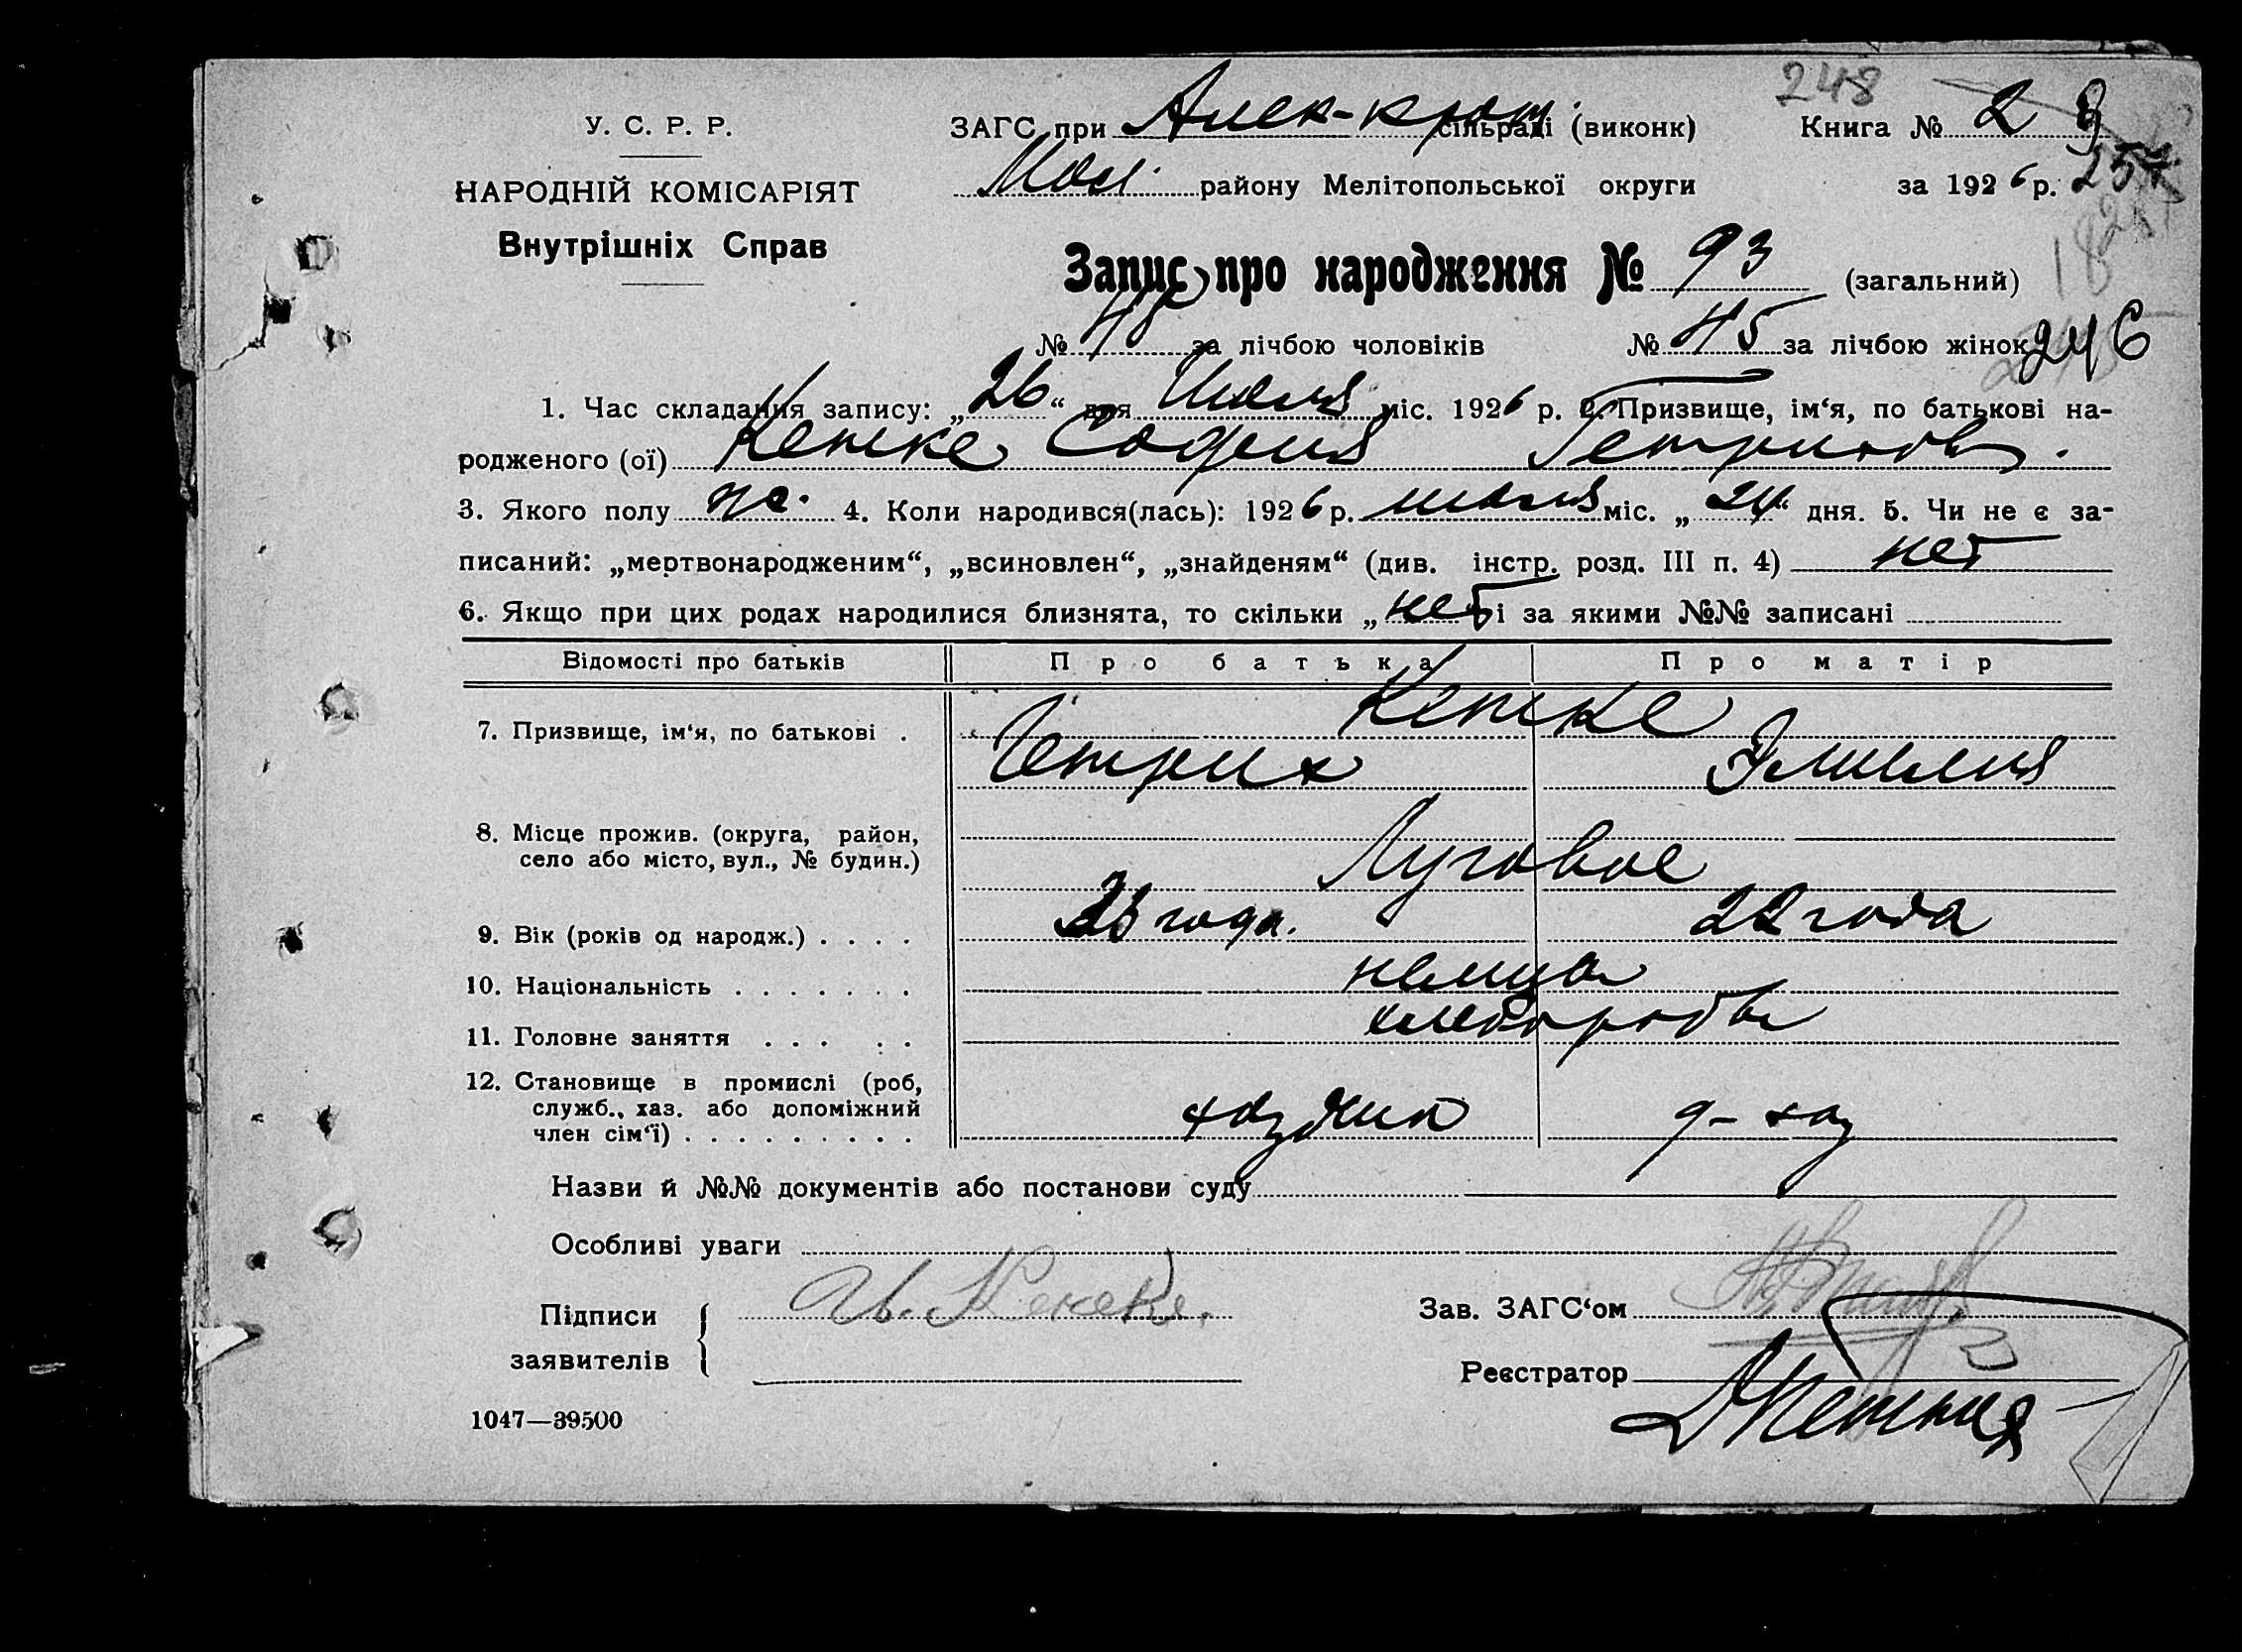 248
У. С. Р. Р. ЗАГС при Алек-крон. сільраді (виконк) Книга № 2
НАРОДНІЙ КОМІСАРІЯТ Мол. району Мелітопольської округи за 1926 р. 257
Внутрішніх Справ
Запис про народження № 93 (загальний)
№ 48 за лічбою чоловіків № 45 за лічбою жінок 246
1. Час складання запису: „26“ дня Июля міс. 1926 р. 2. Призвище, ім‘я, по батькові на-
родженого (ої) Кетке София Гетрихов.
3. Якого полу ж. 4. Коли народився(лась): 1926 р. июля міс. „24“ дня. 5. Чи не є за-
писаний: „мертвонародженим“, „всиновлен“, „знайденям“ (див. інстр. розд. III п. 4) нет
6. Якщо при цих родах народилися близнята, то скільки „нет і за якими №№ записані
Відомості про батьків Про батька Про матір
7. Призвище, ім‘я, по батькові . Кетке
Гетрих Эмилия
8. Місце прожив. (округа, район,
село або місто, вул., № будин.) Луговое
9. Вік (років од народж.) . . . . года. 22 года
10. Національність . . . . . . . немцы
11. Головне заняття . . . . . хлеборобы
12. Становище в промислі (роб,
служб., хаз. або допоміжний
член сім‘ї) . . . . . . . . . хозяин д-хоз
Назви й №№ документів або постанови суду
Особливі уваги
Підписи Зав. ЗАГС‘ом
заявителів Реєстратор
1047—39500